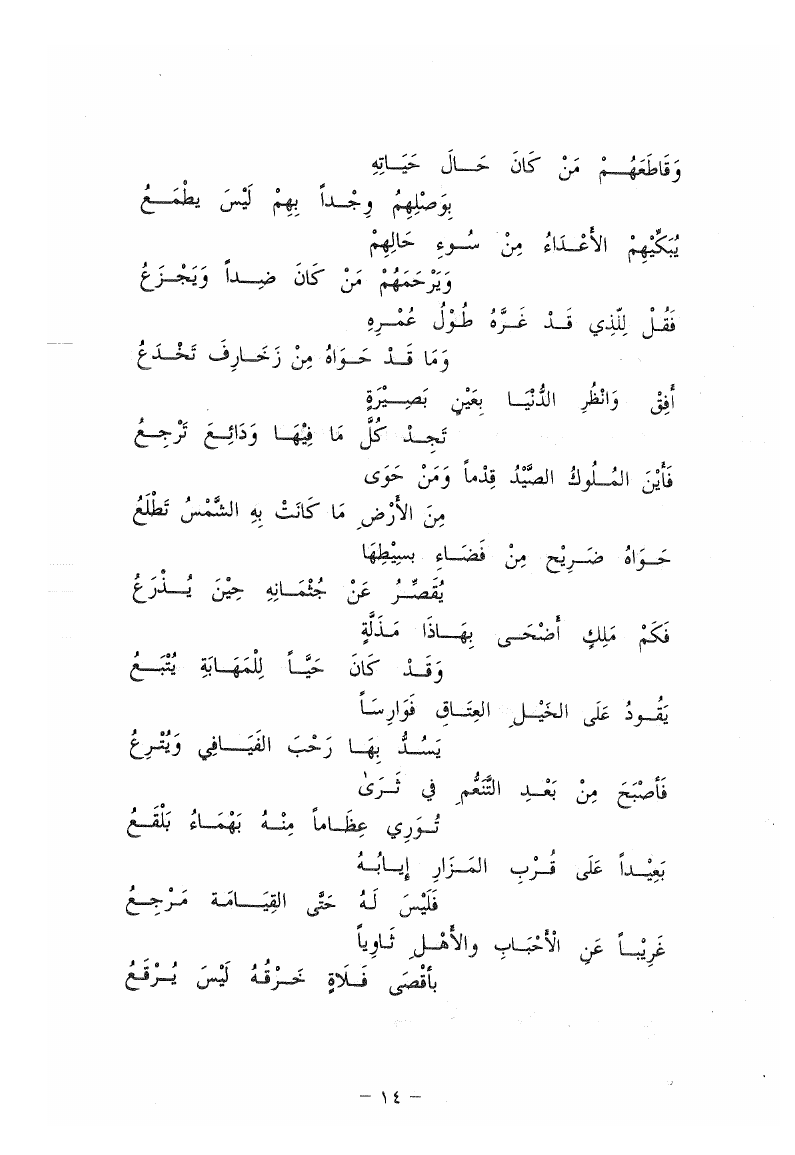 وَقَاطَعَهُمْ مَنْ كَانَ حَالَ حَيَاتِهِ
بِوَصْلِهِمُ وِجْداً بِهِمْ لَيْسَ يطْمَعُ
يُبَكِّيهِمْ الأَعْدَاءُ مِنْ سُوءِ حَالِهِمْ
وَيَرْحَمُهُمْ مَنْ كَانَ ضِداً وَيَجْزَعُ
فَقُلْ لِلّذِي قَدْ غَرَّهُ طُوْلُ عُمْرِهِ
وَمَا قَدْ حَوَاهُ مِنْ زَخَارِفَ تَخْدَعُ
أَفِقْ وَانْظُرِ الدُّنْيَا بِعَيْنٍ بَصِيْرَةٍ
تَجِدْ كُلَّ مَا فِيْهَا وَدَائِعَ تَرْجِعُ
فَأَيْنَ المُلُوكُ الصَّيْدُ قِدْماً وَمَنْ حَوَى
مِنَ الأَرْضِ مَا كَانَتْ بِهِ الشَّمْسُ تَطْلَعُ
حَوَاهُ ضَرِيْح مِنْ فَضَاءِ بسِيْطِهَا
يُقَصِّرُ عَنْ جُثْمَانِهِ حِيْنَ يُذْرَعُ
فَكَمْ مَلِكٍ أَضْحَى بِهَاذَا مَذَلَّةٍ
وَقَدْ كَانَ حَيّاً لِلْمَهَابَةِ يُتْبَعُ
يَقُودُ عَلَى الخَيْلِ العِتَاقِ فَوَارِسَاً
يَسُدُّ بِهَا رَحْبَ الفَيَافِي وَيُتْرِعُ
فَأصْبَحَ مِنْ بَعْدِ التَّنَعُّمِ في ثَرَىٰ
تُوَرِي عِظَاماً مِنْهُ بَهْمَاءُ بَلْقَعُ
بَعِيْداً عَلَى قُرْبِ المَزَارِ إيَابُهُ
فَلَيْسَ لَهُ حَتَّى القِيَامَة مَرْجِعُ
غَرِيْباً عَنِ الْأَحْبَابِ والأَهْلِ ثَاوِياً
بأَقْصَى فَلَاةٍ خَرْقُهُ لَيْسَ يُرْقَعُ
– ١٤ –